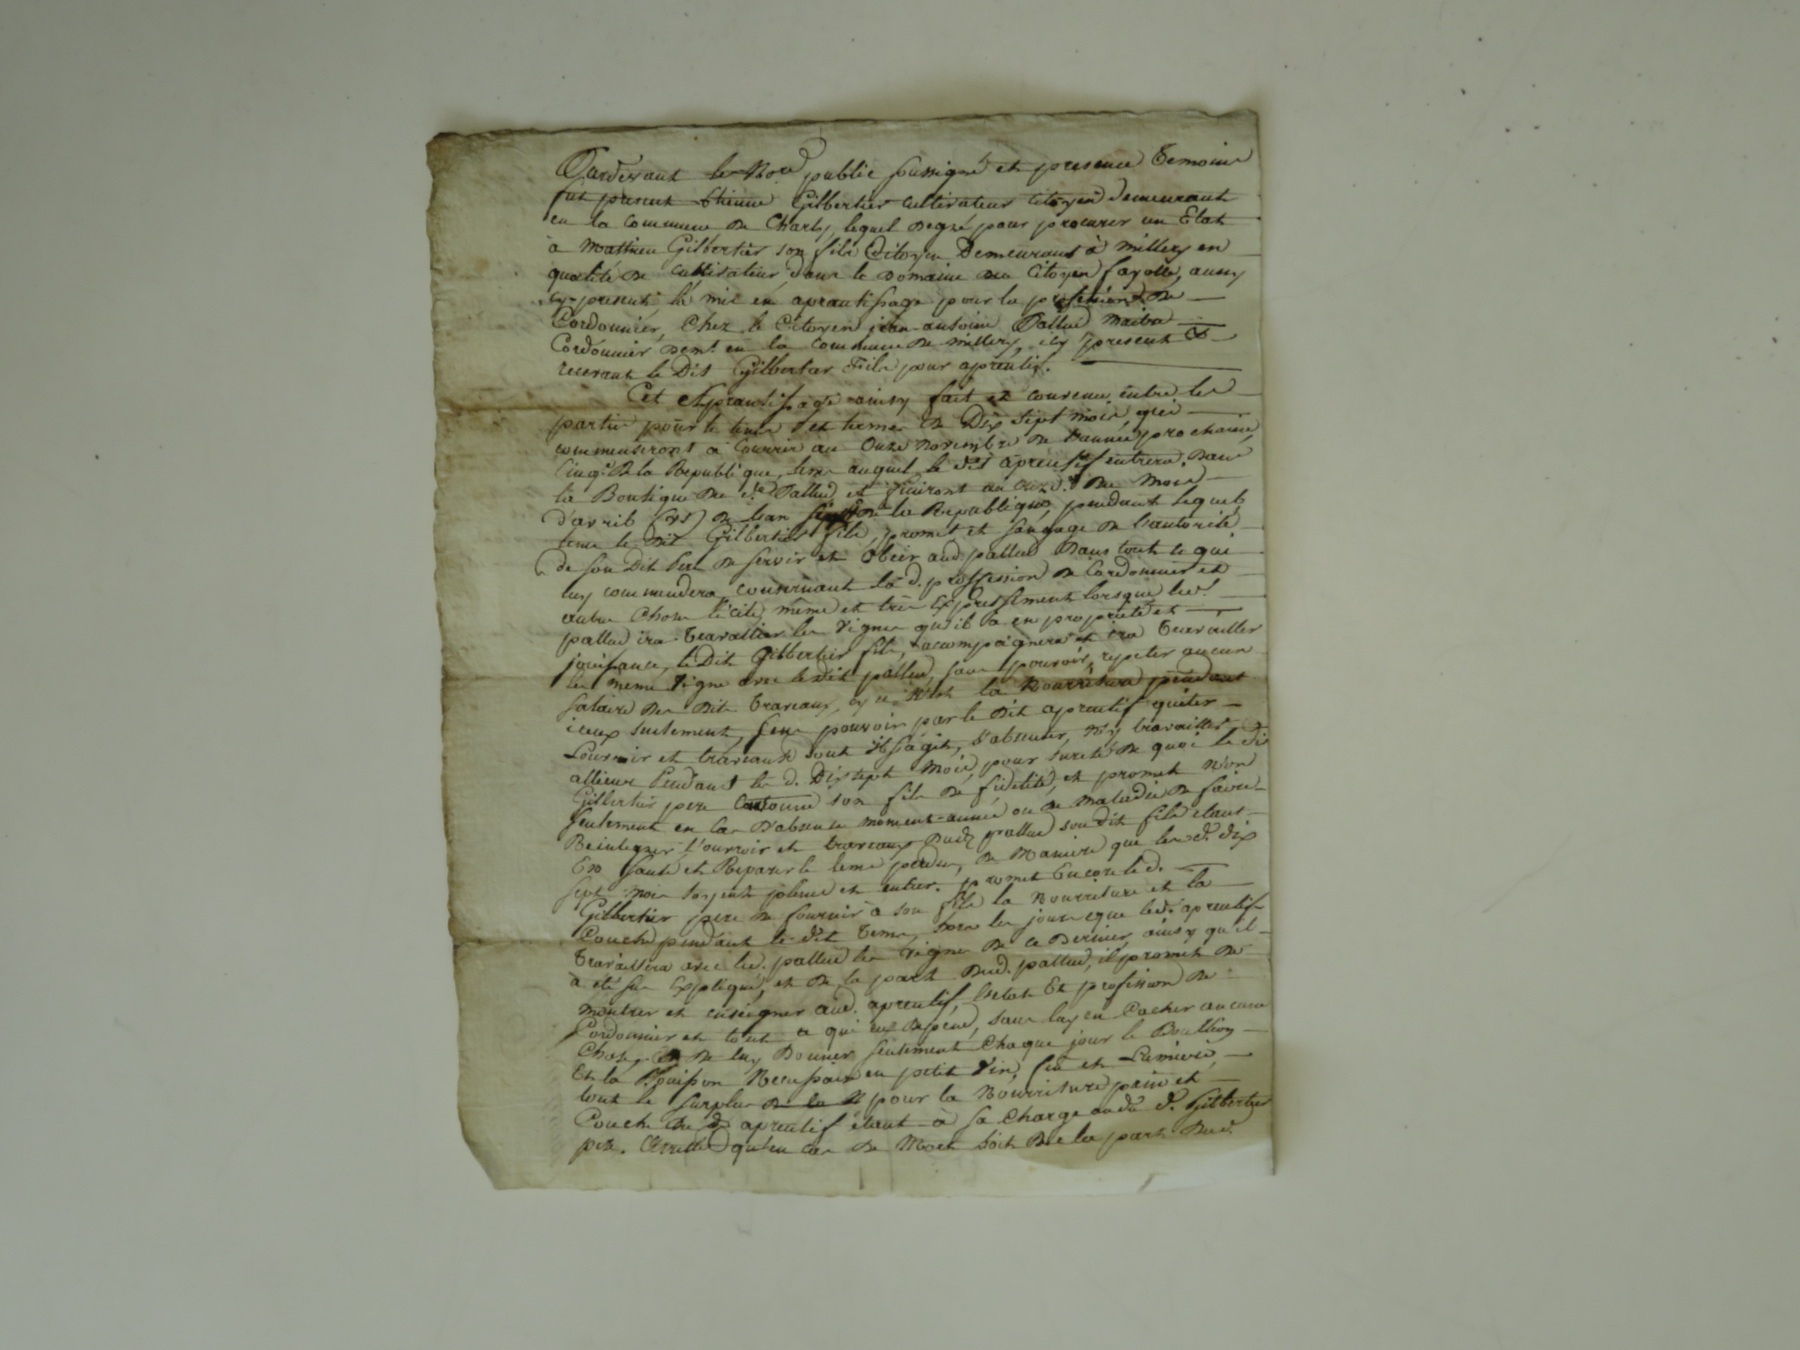 Pardevant le No.re public soussigné et presence Temoins
fut present Etienne Gilbertier cultivateur citoyen demeurant
en la commune de Charly, lequel degré pour procurer un Etat
à Mathieu Gilbertier son fils Citoyen Demeurant à Millery en
qualité de cultivateur dans le domaine du Citoyen fayolle, aussy
cy present la mis en aprantissage pour la profession de
Cordonnier, chez le Citoyen jean antoine Pallud maitre
Cordonnier dem.t en la commune de millery, icy present et
recevant le Dit Gilbertier Fils pour aprentif.
Cet Aprantissage ainsy fait et convenu entre les
parties pour le tems et terme de Dix sept mois, qui
commenseront à Courrir au Onze Novembre de l'année prochaine,
cinq.e de la Republique, tems auquel le dit aprentif entrera dans
la Boutique du d. Pallud et finiront au onze du Mois
d'avril (vs) de l'an la Republique, pendant lequel
tems le dit Gilbertier fils, promet et sangage de l'autorité
de son Dit pere de servir et obeir aud. pallud dans tout ce qui
luy commendera concernant la d. proffession de Cordonnier et
autre chose licite, même et très Expressement lorsque led.
pallud ira travailler les vignes qu'il a en propriété et
jouissance, le Dit Gilbertier fils, acompagnera et ira travailler
les meme vigne avec le dit pallud, sans pouvoir repeter aucun
salaire des dits travaux, sy ce n'est la Nourriture pendant
iceux seulement, sans pouvoir par le Dit aprentif quitter
L'ouvroir et travaux dont il s'agit, s'absenter, ny travailler
allieur Pendant les d. Dix sept mois, pour sureté de quoi le dit
Gilbertier pere cautionne son fils de fidelité, et promet non
seulement en cas d'absence ou de maladie de faire
Reintegrer l'ouvroir et travaux dud. pallud son dit fils etant
En santé et Reparer le tems perdu, de Maniere que les d. dix
sept mois soyent pleins et entier. promet Encore led.
Gilbertier pere de fournir à son fils la Nourriture et la
Couche pendant le dit tems, hors les jours que led. aprentif
travaillera avec led. pallud les vignes de ce Dernier, ainsy qu'il
a eté sus Expliqué, et de la part dud. pallud, il promet de
montrer et enseigner aud. aprentif, l'etat Et profission de
Cordonnier et tout ce qui en depend, sans luy en Cacher aucune
Chose, de luy Donner seulement Chaque jour le Bouillon
Et la Boisson Necessaire en petit vin, feu et Lumiere,
tout le surplus de la N pour la Nourriture pain et
Couche du d. aprentif etant à sa Charge ou du d. Gilbertier
pere. Arreté qu'en cas de Mort soit de la part dud.